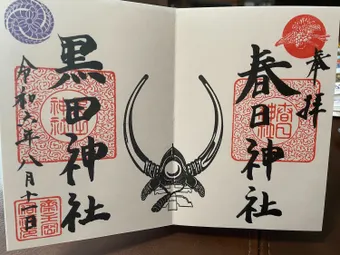 奉拝
春日神社
黒田神社
令和六年八月十一日